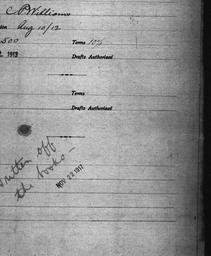 C P Williams
Aug 10/12
500 Terms 10%
2, 1913 Drafts Authorized
Terms
Drafts Authorized
written off
the books -
NOV 22 1917